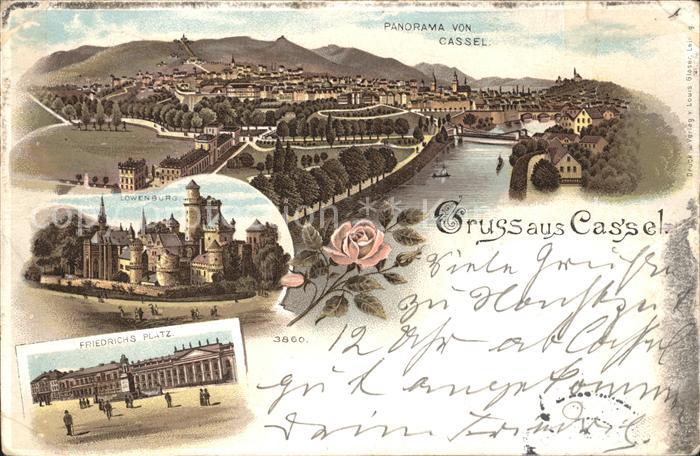 PANORAMA VON
CASSEL.
Druck u. Verlag v. Louis Glaser, Lei g
LÖWENBURG.
Gruss aus Cassel.
Viele Grüße
zu
12 Uhr ab Cassel
gut angekommen
Dein Friedrich.
3860.
FRIEDRICHS PLATZ.